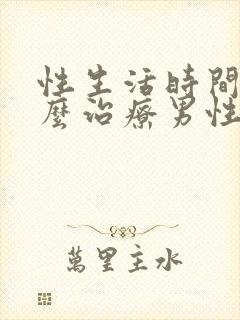 性生活時間
麼治療男性
萬里主水